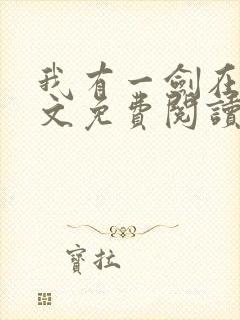 我有一劍在
文免費閱讀
寶拉